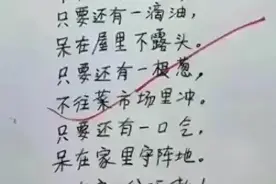 只要还有一滴油，
呆在屋里不露头。
只要还有一根葱，
不往菜市场里冲。
只要还有一口气，
呆在家里守阵地。